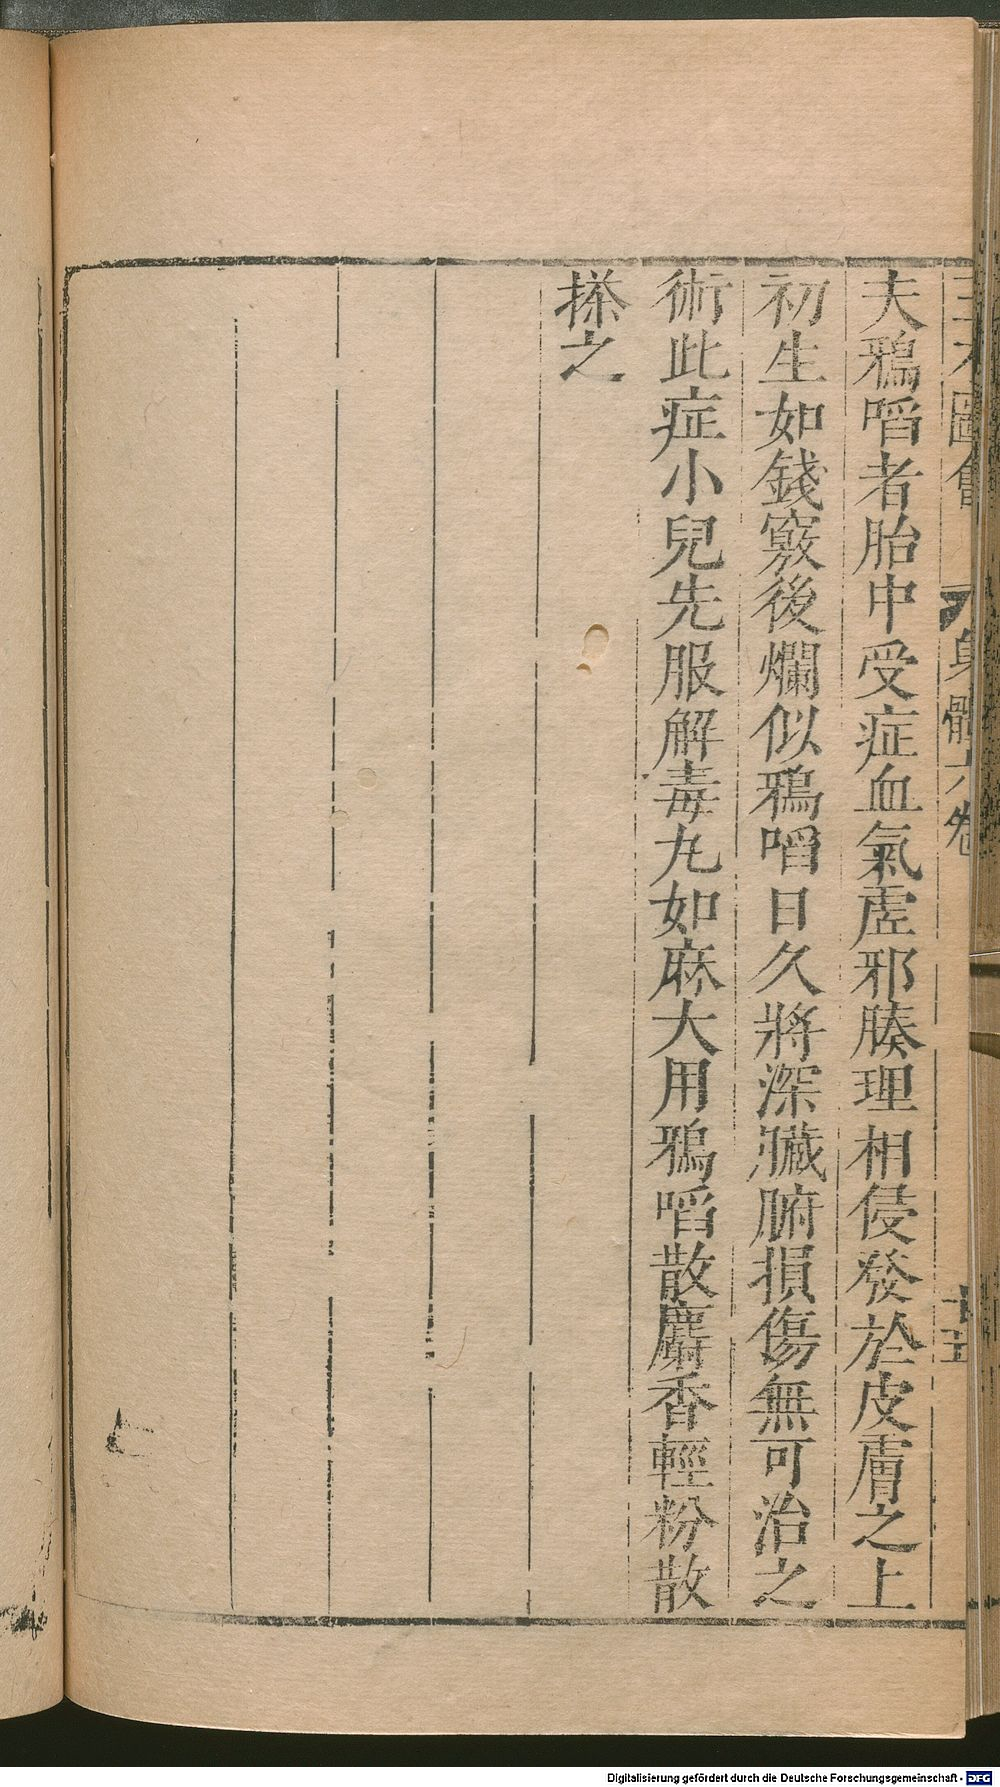 三才圖會 身體六卷 十五
夫鴉啗者胎中受症血氣虛邪腠理相侵發於皮膚之上
初生如錢竅後爛似鴉啗日久將深臟腑損傷無可治之
術此症小兒先服解毒丸如麻大用鴉啗散麝香輕粉散
搽之
Digitalisierung gefördert durch die Deutsche Forschungsgemeinschaft - DFG